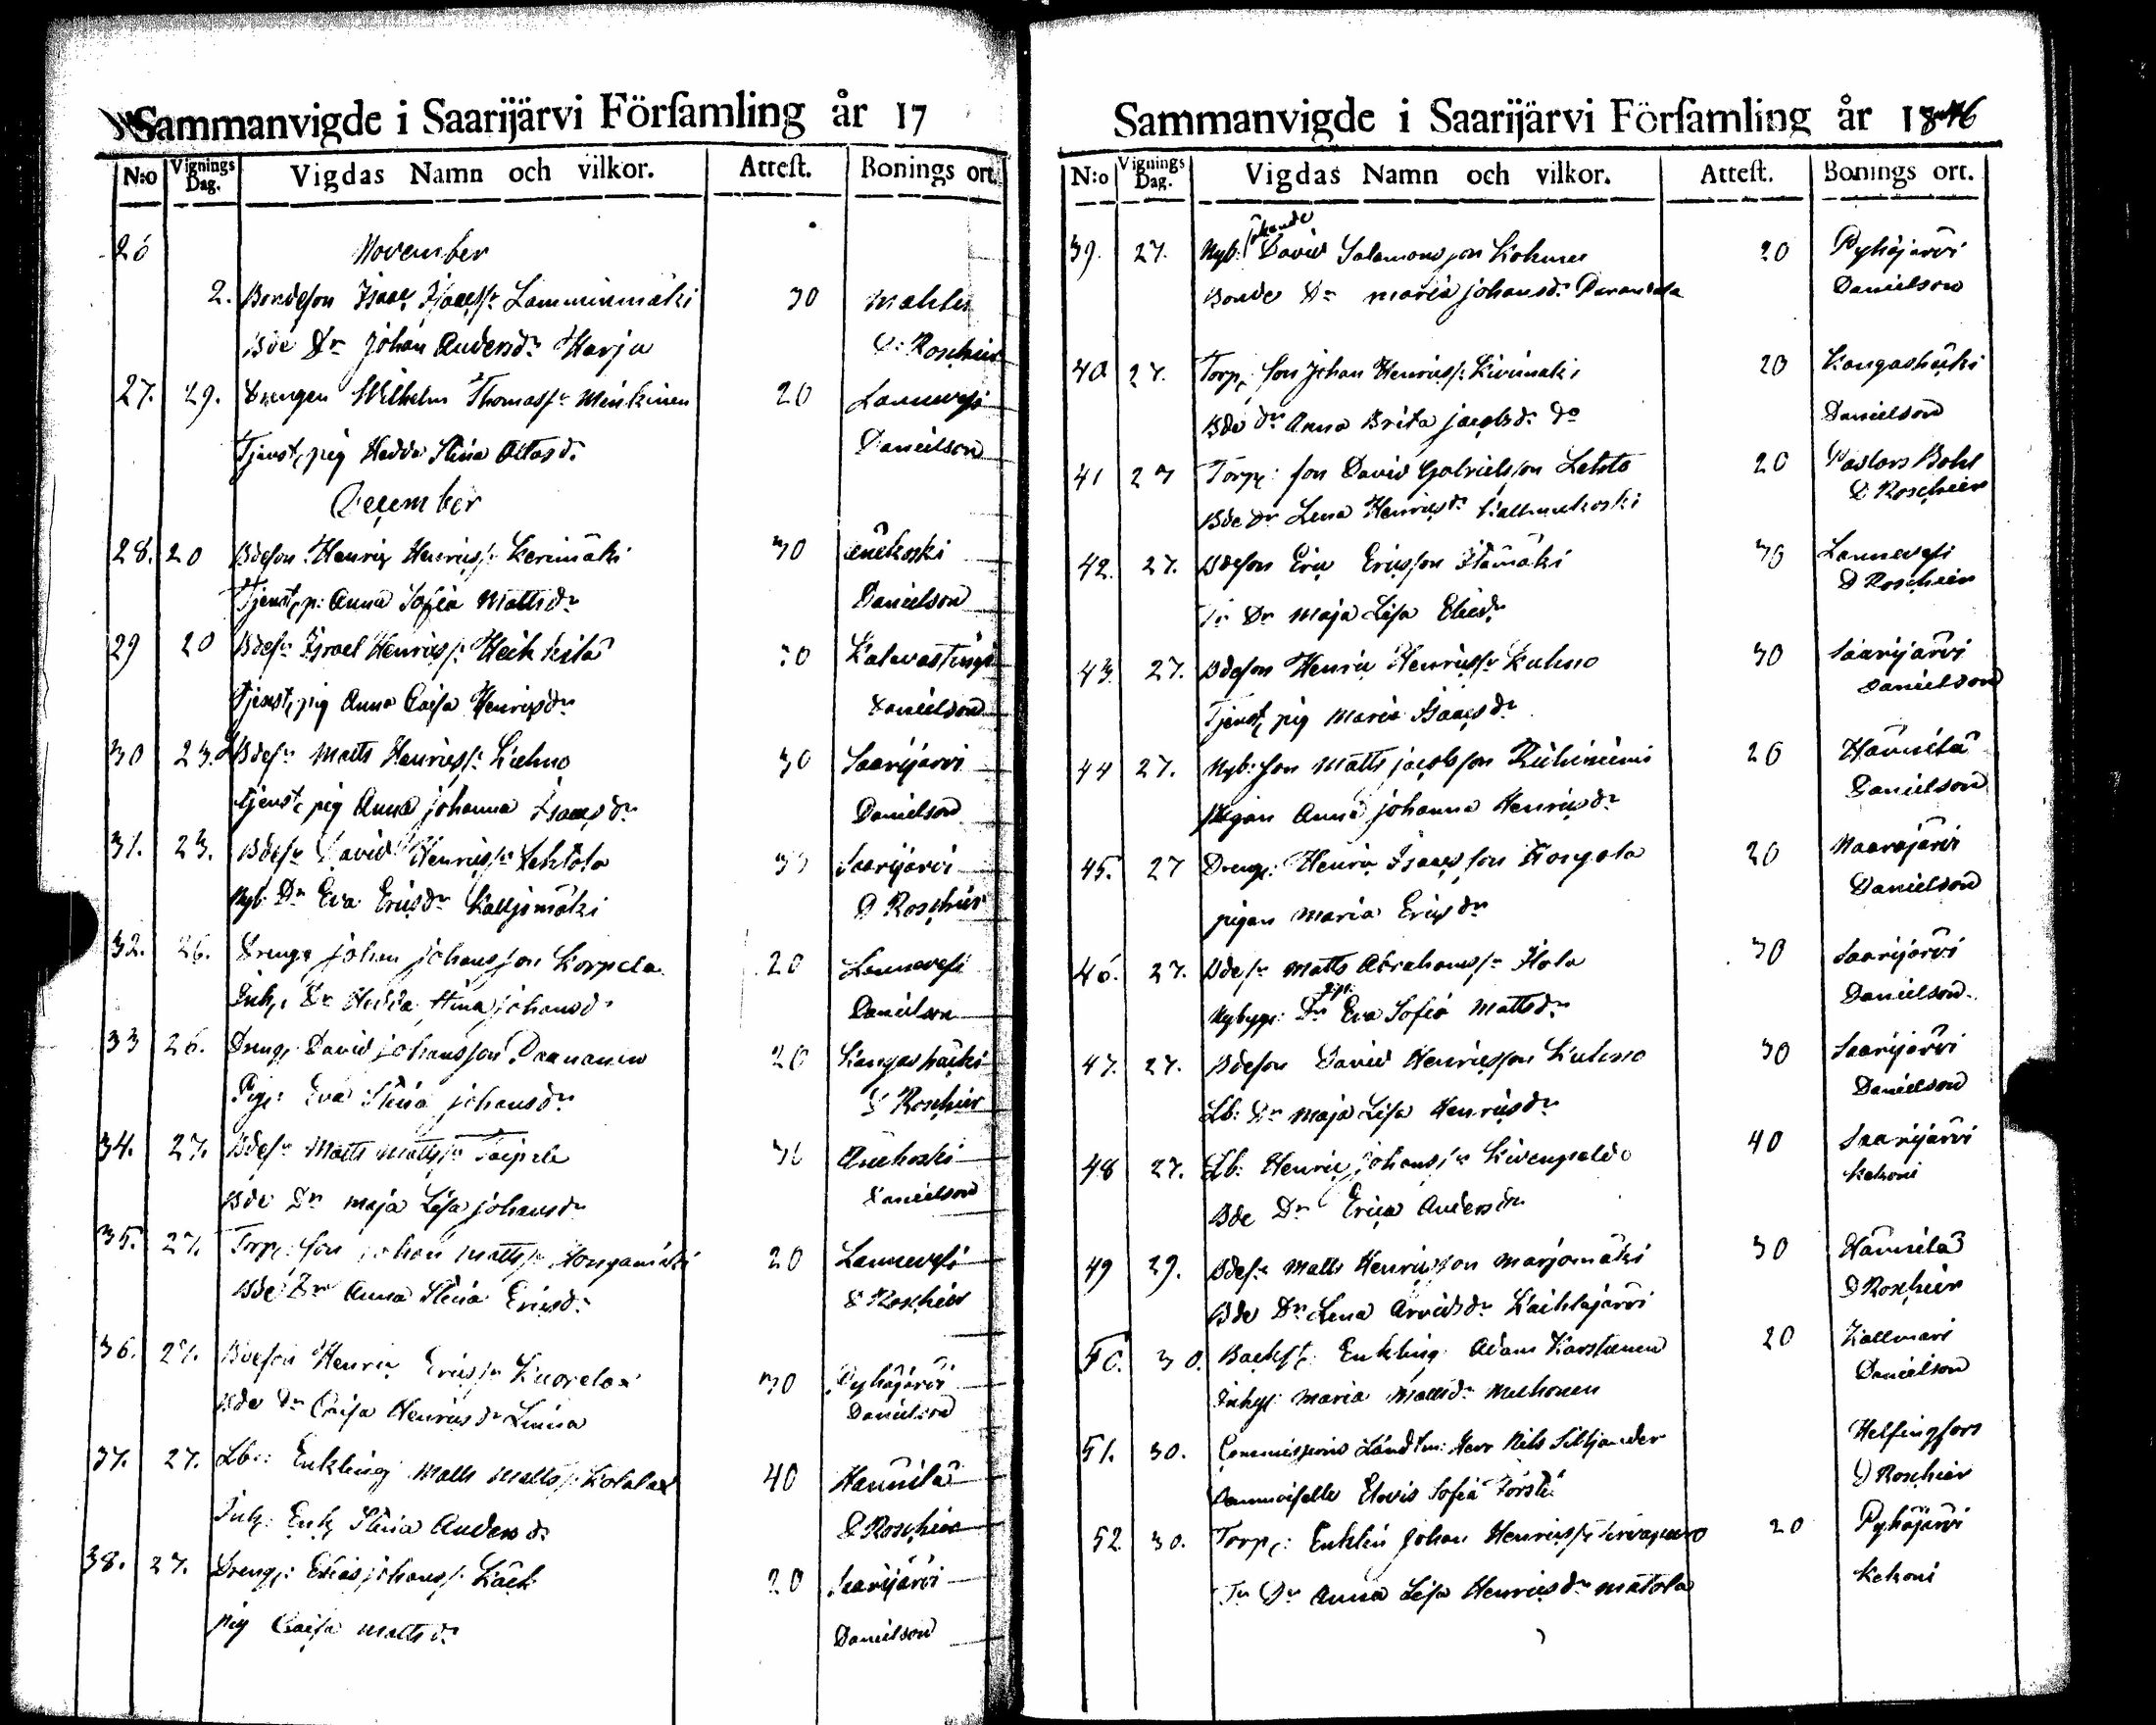 Sammanvigde i Saarijärvi Förſamling år 17
N:o Vignings Dag. Vigdas Namn och vilkor. Atteſt. Bonings ort.
26 November
2. Bondeson Isaac Isaacss: Lamminmäki 30 Mahlu
Bde Dr Johan Andersdr Harju D: Roschier
27. 29. Drengen Wilhelm Thomass: Minkinen 20 Lannevesi
Tjenst, pig Hedda Stina Ottosd: Danielson
December
28. 20 Bdeson Henric Henricss: Kerimäki 30 Änekoski
Tjenst, p: Anna Sofia Mattsdr Danielson
29 20 Bdess Israel Henricss: Heikkilä 30 Kalmari
Tjenst, pig Anna Caisa Henricsdr Danielson
30 23. Bdess Matts Henricss: Kuhno 30 Saarijärvi
tjenst, pig Anna Johanna Isaacsdr Danielson
31. 23. Bdess David Henricss: Lehtola 30 Saarijärvi
Nyb: Dr Eva Ericsdr Kalljomäki D Roschier
32. 26. Drenge Johan Johansson Korpela 20 Lannevesi
Inh, Dr Hedda Stina Johansd: Danielson
33 26. Dreng, David Johansson Paananen 20 Kangashäki
Pig: Eva Stina Johansdr D Roschier
34. 27. Bdess Matts Mattss: Taipale 30 Änekoski
Bde Dr Maja Lisa Johansdr Danielson
35. 27. Torp: son Johan Mattss: Hongamäki 20 Lannevesi
Bde Dr Anna Stina Ericsd: D Roschier
36. 27. Bdeson Henric Ericss: Kuorelax 30 Pyhäjärvi
Bde Dr Caisa Henricsdr Linna Danielson
37. 27. Lb: Enkling Matts Mattss: Kolalax 40 Hannila
Inh: Enk, Stina Andersd: D Roschier
38. 27. Dreng: Elias Johanss: Käck 20 Saarijärvi
pig Caisa Mattsd: Danielson
Sammanvigde i Saarijärvi Förſamling år 1846
N:o Vignings Dag. Vigdas Namn och vilkor. Atteſt. Bonings ort.
39. 27. Nyb: David Salomonsson Kokunen 20 Pyhäjärvi
Bonde Dr Maria Johansdr Parandala Danielson
40 27. Torp: son Johan Henricss: Kivimäki 20 Kangashäki
Bde dr Anna Brita Jacobsd: do Danielson
41 27 Torp: son David Gabrielsson Lehto 20 Pastors Bohl
Bde Dr Lena Henricsdr Kallmukoski D Roschier
42. 27. Bdeson Eric Ericsson Itämäki 30 Lannevesi
Tr Dr Maja Lisa Eliedr D Roschier
43. 27. Bdeson Henric Henricss: Kuhno 30 Saarijärvi
Tjenst, pig Maria Isaacsdr Danielson
44 27. Nyb: son Matts Jacobsson Riihiniemi 20 Hännilä
pigan Anna Johanna Henricsdr Danielson
45. 27 Dreng: Henric Isaacsson Kongola 20 Naarajärvi
pigan Maria Ericsdr Danielson
46. 27. Bdess Matts Abrahamss: Hola 30 Saarijärvi
Nybygg: Dr Eva Sofia Mattsdr Danielson
47. 27. Bdeson David Henricsson Kuhno 30 Saarijärvi
Lb: Dr Maja Lisa Henricsdr Danielson
48 27. Lb: Henric Johanss: Kivenpeldo 40 Saarijärvi
Bde Dr Erica Andersdr Kekoni
49 29. Bdess Matts Henricsson Marjomäki 30 Hännilä
Bde Dr Lena Arvidsdr Kaihlajärvi D Roschier
50. 30. Backst: Enkling Adam Karstunen 20 Kallmari
Inhys: Maria Mattsdr Methonen Danielson
51. 30. Commissions Landtm: Herr Nils Silfjander Helsingfors
Dammoiselle Elovis Sofia Forsti D Roschier
52. 30. Torp: Enklin Johan Henricss: Tervapuro 20 Pyhäjärvi
Tr Dr Anna Lisa Henricsdr Mätola Kekoni